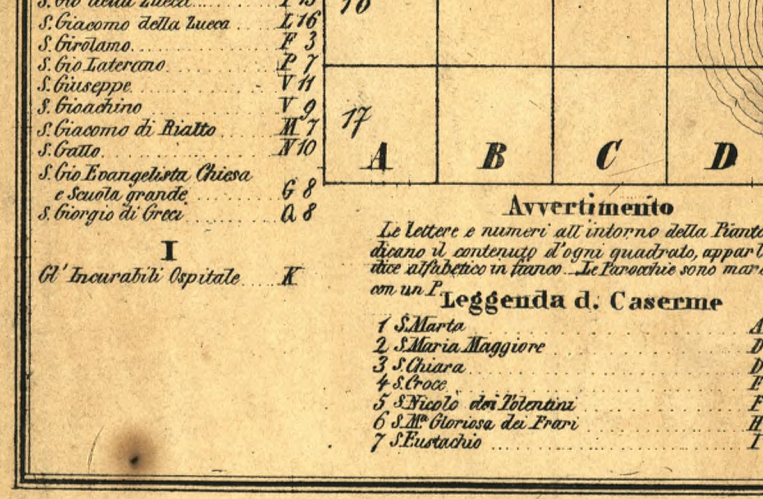 S. Giacomo della Zueca L 16
S. Girolamo F 3
S. Gio Laterano P 7
S. Giuseppe V 11
S. Gioachino V 9
S. Giacomo di Rialto M 7
S. Gallo N 10
S. Gio Evangelista Chiesa
e Scuola grande G 8
S. Giorgio di Greci Q 8
I
Gl' Incurabili Ospitale K
16
17
A B C D
Avvertimento
Le lettere e numeri all' intorno della Pianta
dicano il contenuto d'ogni quadrato, appar l
dice alfabetico in fianco. Le Parocchie sono mar
con un P.
Leggenda d. Caserme
1 S. Marta A
2 S. Maria Maggiore D
3 S. Chiara D
4 S. Croce E
5 S. Nicolò dei Tolentini F
6 S. Mª Gloriosa dei Frari H
7 S. Eustachio I